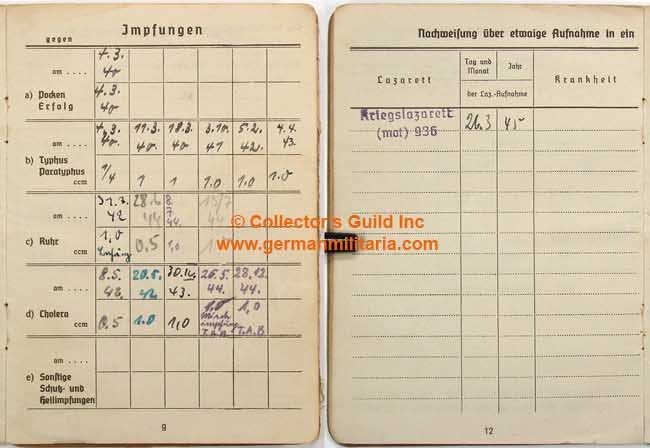 Impfungen
gegen
4.3.
am .... 40
a) Pocken 4.3.
Erfolg 40
4.3. 11.3. 18.3. 3.10. 5.2. 4.4.
am .... 40. 40. 40. 41 42. 43.
b) Typhus
Paratyphus 1 1 1.0 1.0 1.0
ccm
31.3. 28.6 8. 15/7
am .... 42 44 7. 44
44.
c) Ruhr 1,0 0.5 1,0
ccm
8.5. 20.5. 30.12. 26.5. 28.12.
am .... 42. 42. 43. 44. 44.
d) Cholera 1.0 1,0
ccm 0.5 1.0 1,0 T.A.B. T.A.B
am ....
e) Sonstige
Schutz- und
Heilimpfungen
9
Nachweisung über etwaige Aufnahme in ein
Lazarett
Tag und Monat
Jahr
der Laz.-Aufnahme
Krankheit
Kriegslazarett 26.3 45
(mot) 936
12
© Collector's Guild Inc
www.germanmilitaria.com